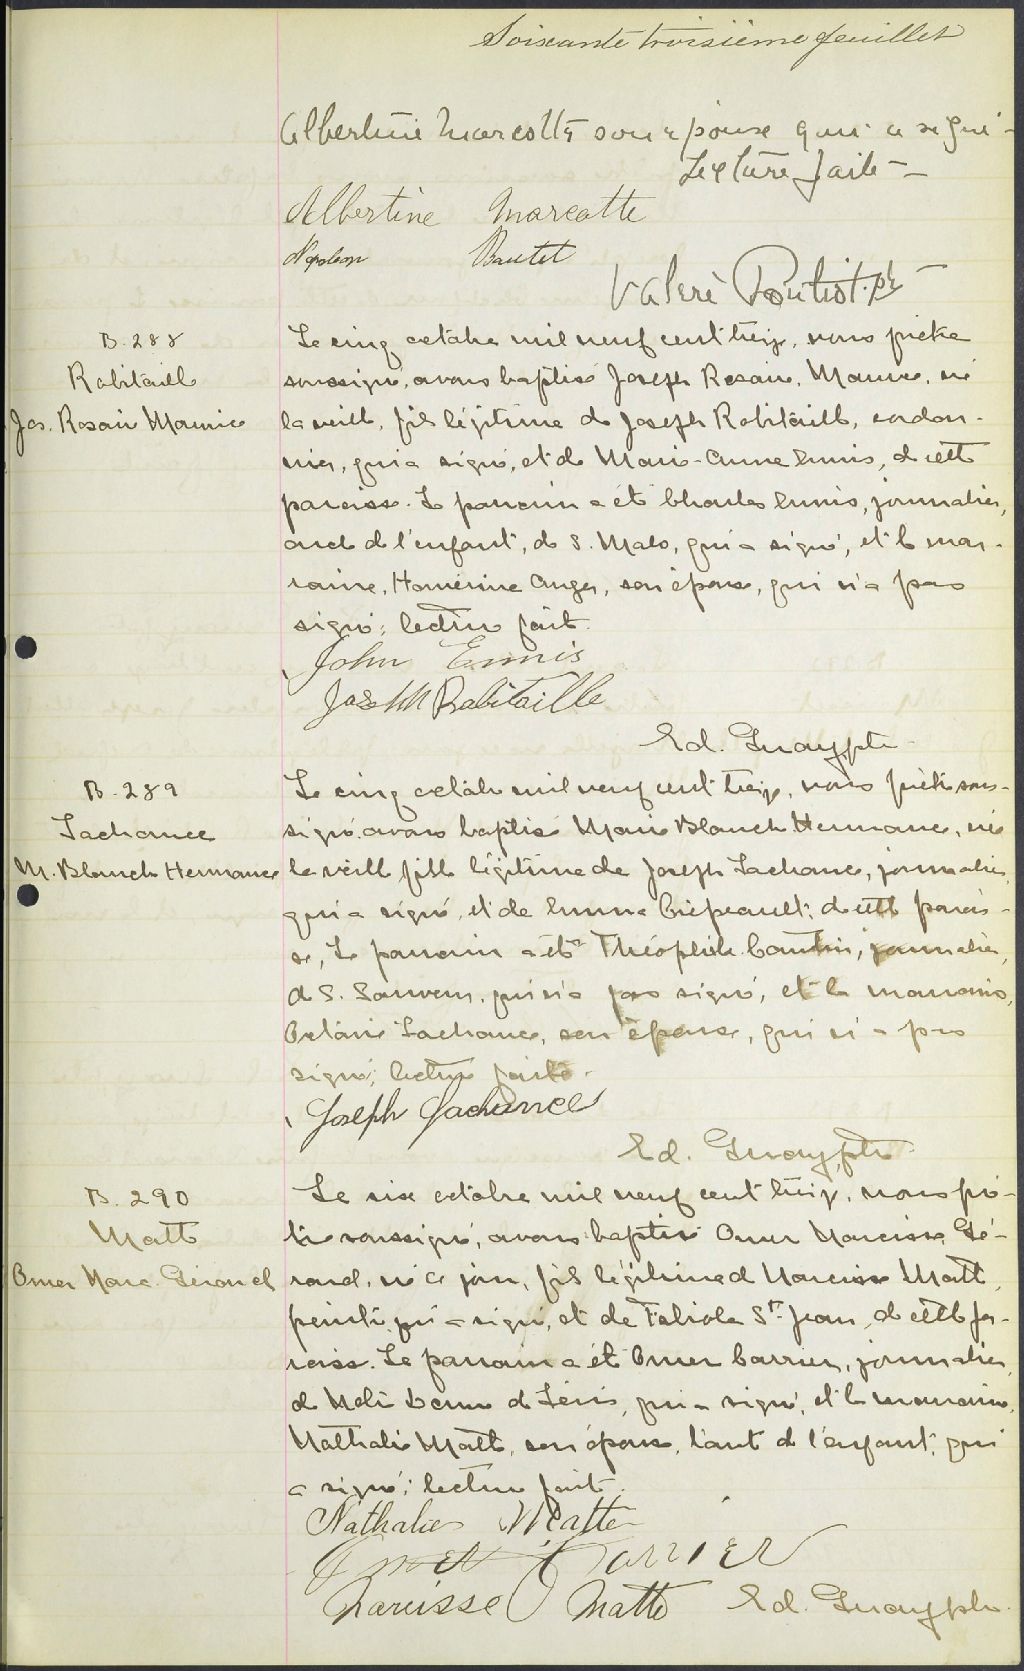 Soixante troisième feuillet
Albertine Marcotte son épouse qui a signé -
Lecture faite -
Albertine Marcotte
Napoleon Bautet
Valère Poutiot ptr
B. 288
Robitaille
Jos. Rosaire Maurice
Le cinq octobre mil neuf cent treize, nous prêtre
soussigné, avons baptisé Joseph Rosaire, Maurice, né
la veille, fils légitime de Joseph Robitaille, cordon-
nier, qui a signé, et de Marie-Anne Ennis, de cette
paroisse. Le parrain a été Charles Ennis, journalier,
oncle de l'enfant, de S. Malo, qui a signé, et la mar-
raine, Homérine Anger, son épouse, qui n'a pas
signé; lecture faite.
John Ennis
Joseph Robitaille
Ed. Guay ptr
B. 289
Lachance
M. Blanche Hermance
Le cinq octobre mil neuf cent treize, nous prêtre sous-
signé avons baptisé Marie Blanche Hermance, née
la veille fille légitime de Joseph Lachance, journalier,
qui a signé, et de Emma Crépeault; de cette parois-
se, Le parrain a été Théophile Cantin, journalier,
de S. Sauveur, qui n'a pas signé, et la marraine,
Octavie Lachance, son épouse, qui n'a pas
signé; lecture faite.
Joseph Lachance
Ed. Guay, ptr
B. 290
Matte
Omer Narc. Gérard
Le six octobre mil neuf cent treize, nous prê-
tre soussigné, avons baptisé Omer Narcisse Gé-
rard, né ce jour, fils légitime de Narcisse Matte,
peintre qui a signé, et de Fabiola St-Jean, de cette pa-
roisse. Le parrain a été Omer Carrier, journalier,
de Notre Dame de Lévis, qui a signé, et la marraine,
Nathalie Matte, son épouse, tante de l'enfant, qui
a signé; lecture faite.
Nathalie Matte
Omer Carrier
Narcisse Matte Ed. Guay ptr